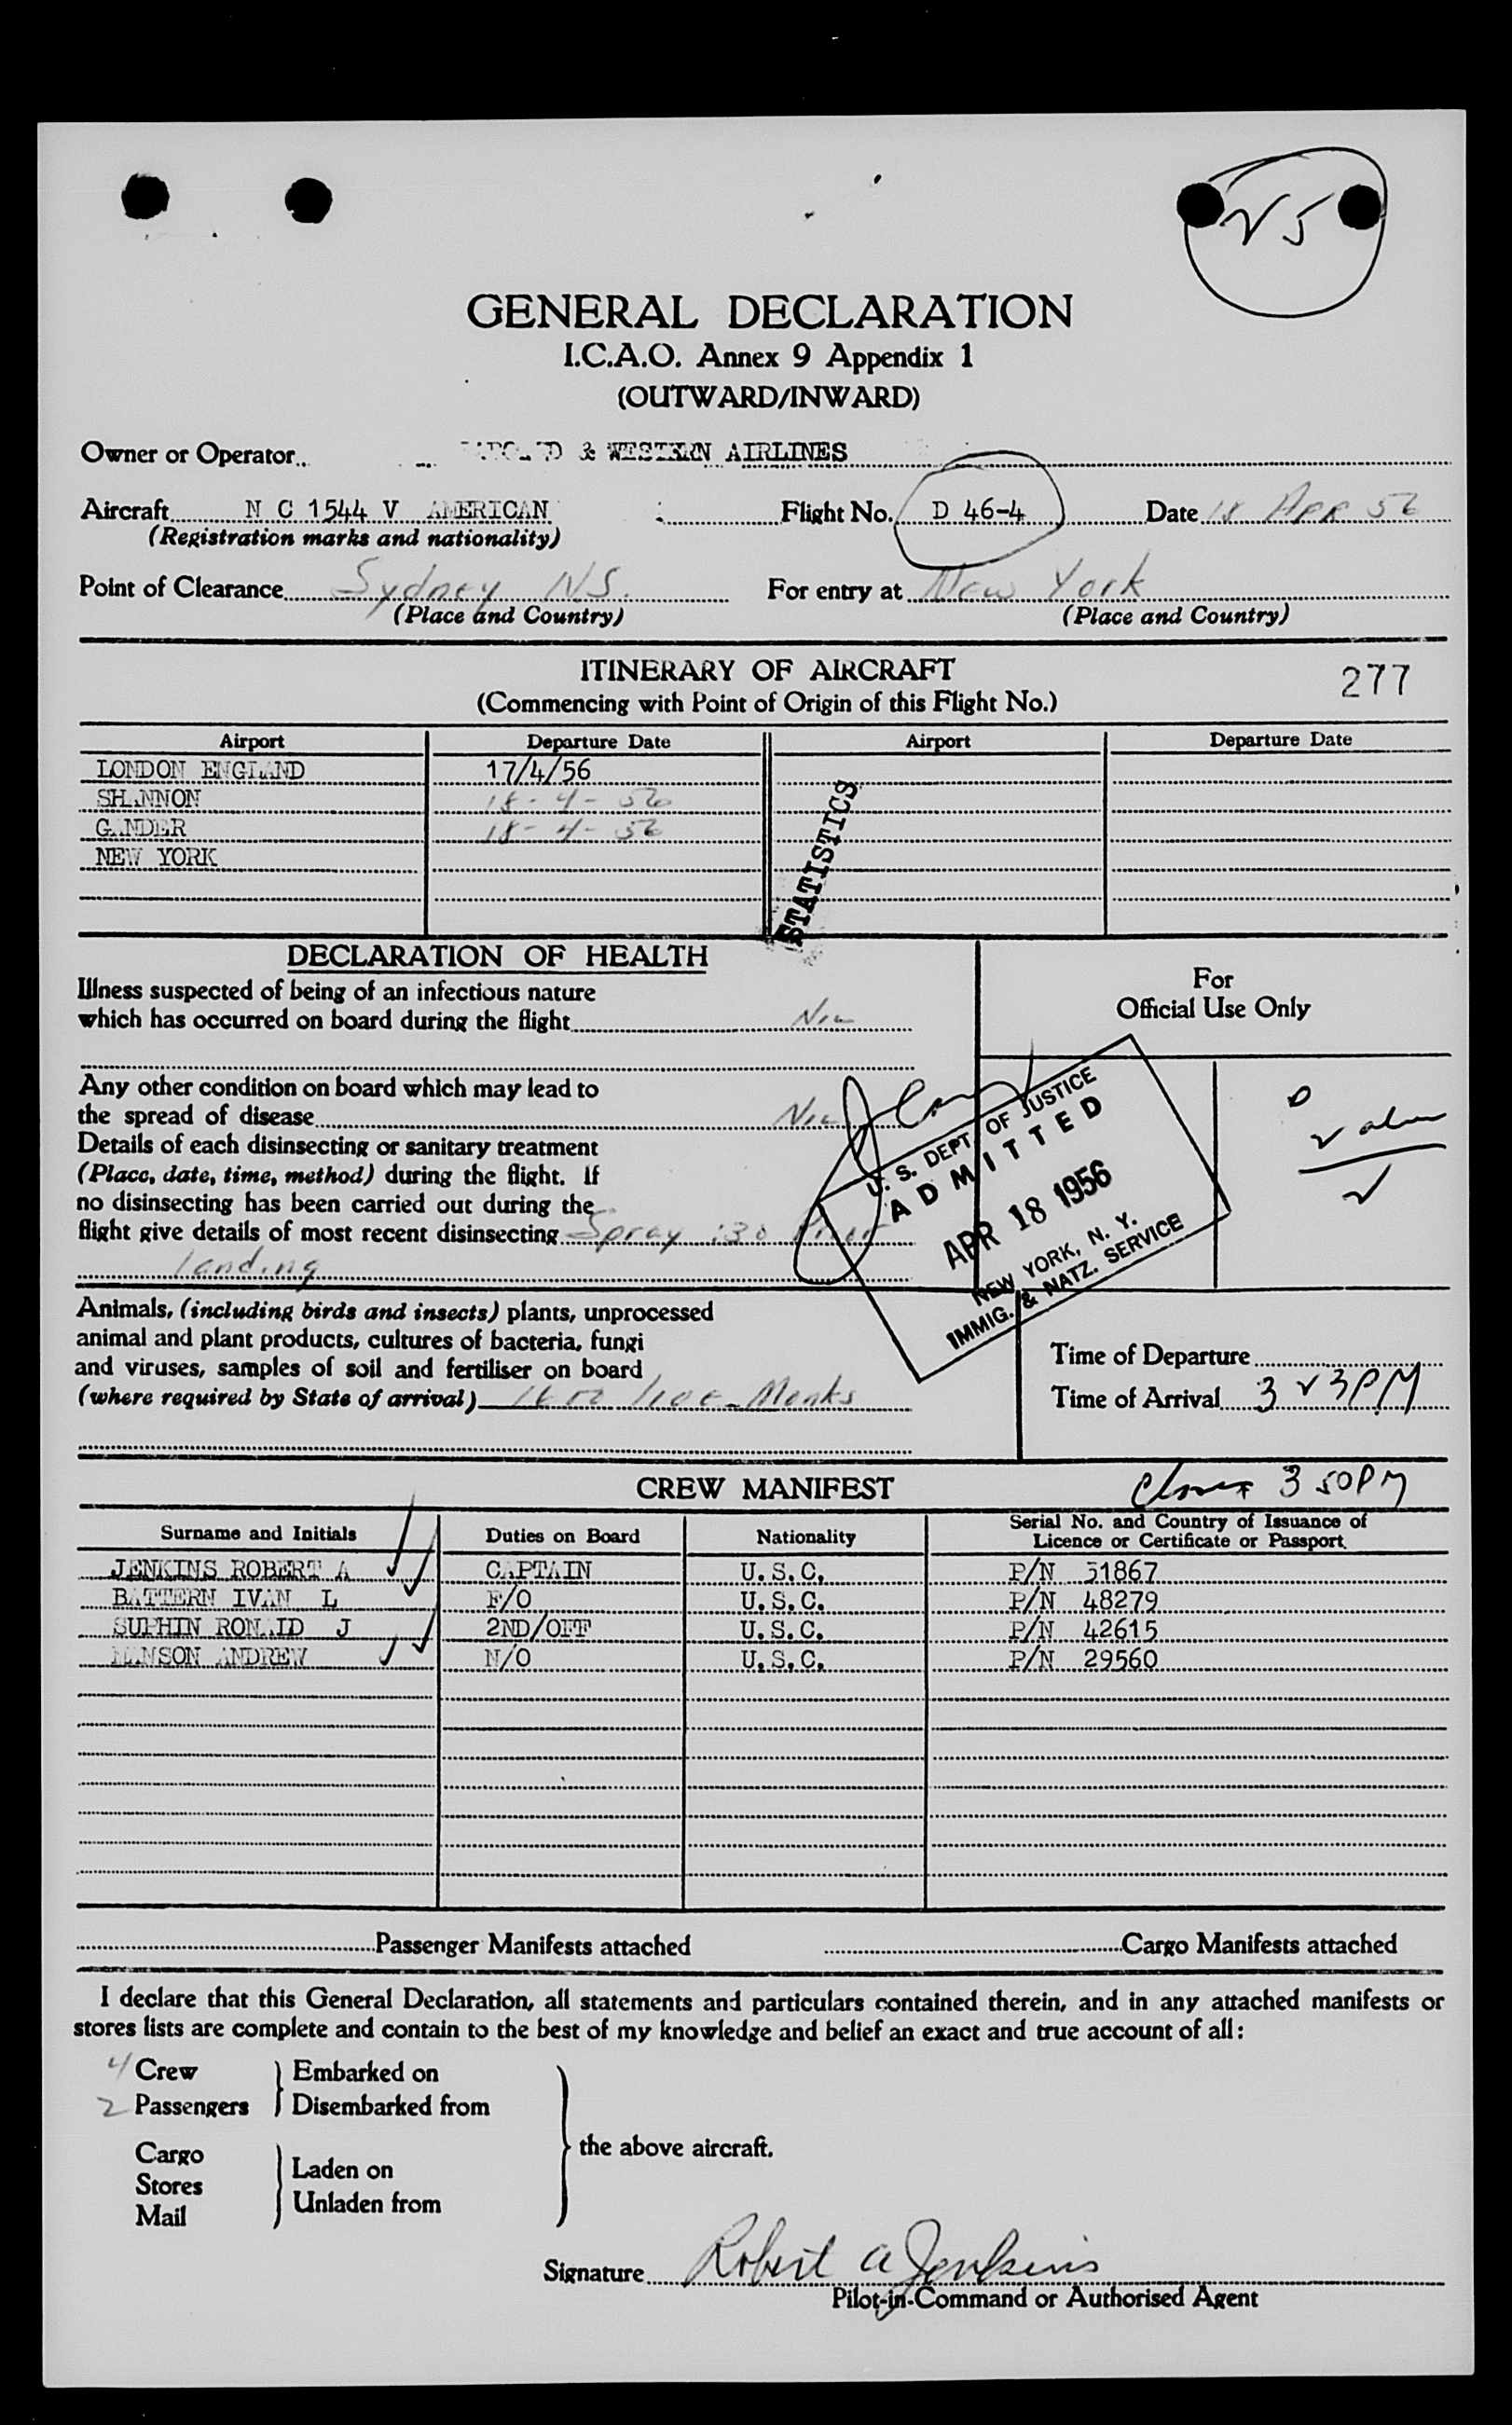 25
GENERAL DECLARATION
I.C.A.O. Annex 9 Appendix 1
(OUTWARD/INWARD)
Owner or Operator & WESTERN AIRLINES
Aircraft N C 1544 V AMERICAN Flight No. D 46-4 Date 18 APR 56
(Registration marks and nationality)
Point of Clearance Sydney NS. For entry at New York
(Place and Country) (Place and Country)
ITINERARY OF AIRCRAFT
277
(Commencing with Point of Origin of this Flight No.)
Airport Departure Date Airport Departure Date
LONDON ENGLAND 17/4/56
SHANNON 18-4-56
GANDER 18-4-56
NEW YORK
STATISTICS
DECLARATION OF HEALTH
Illness suspected of being of an infectious nature
which has occurred on board during the flight Nil
For
Official Use Only
Any other condition on board which may lead to
the spread of disease Nil
Details of each disinsecting or sanitary treatment
(Place, date, time, method) during the flight. If
no disinsecting has been carried out during the
flight give details of most recent disinsecting Spray :30 Prior
landing
U. S. DEPT. OF JUSTICE
ADMITTED
APR 18 1956
NEW YORK, N. Y.
IMMIG. & NATZ. SERVICE
Animals, (including birds and insects) plants, unprocessed
animal and plant products, cultures of bacteria, fungi
and viruses, samples of soil and fertiliser on board
(where required by State of arrival) Monks
Time of Departure
Time of Arrival 3 23PM
CREW MANIFEST
3 50PM
Surname and Initials Duties on Board Nationality Serial No. and Country of Issuance of
Licence or Certificate or Passport.
JENKINS ROBERT A CAPTAIN U.S.C. P/N 51867
BATTERN IVAN L F/O U.S.C. P/N 48279
SUPHIN RONALD J 2ND/OFF U.S.C. P/N 42615
MANSON ANDREW N/O U.S.C. P/N 29560
Passenger Manifests attached Cargo Manifests attached
I declare that this General Declaration, all statements and particulars contained therein, and in any attached manifests or
stores lists are complete and contain to the best of my knowledge and belief an exact and true account of all:
4 Crew Embarked on
2 Passengers Disembarked from
the above aircraft.
Cargo
Stores
Mail
Laden on
Unladen from
Signature Robert A Jenkins
Pilot-in-Command or Authorised Agent